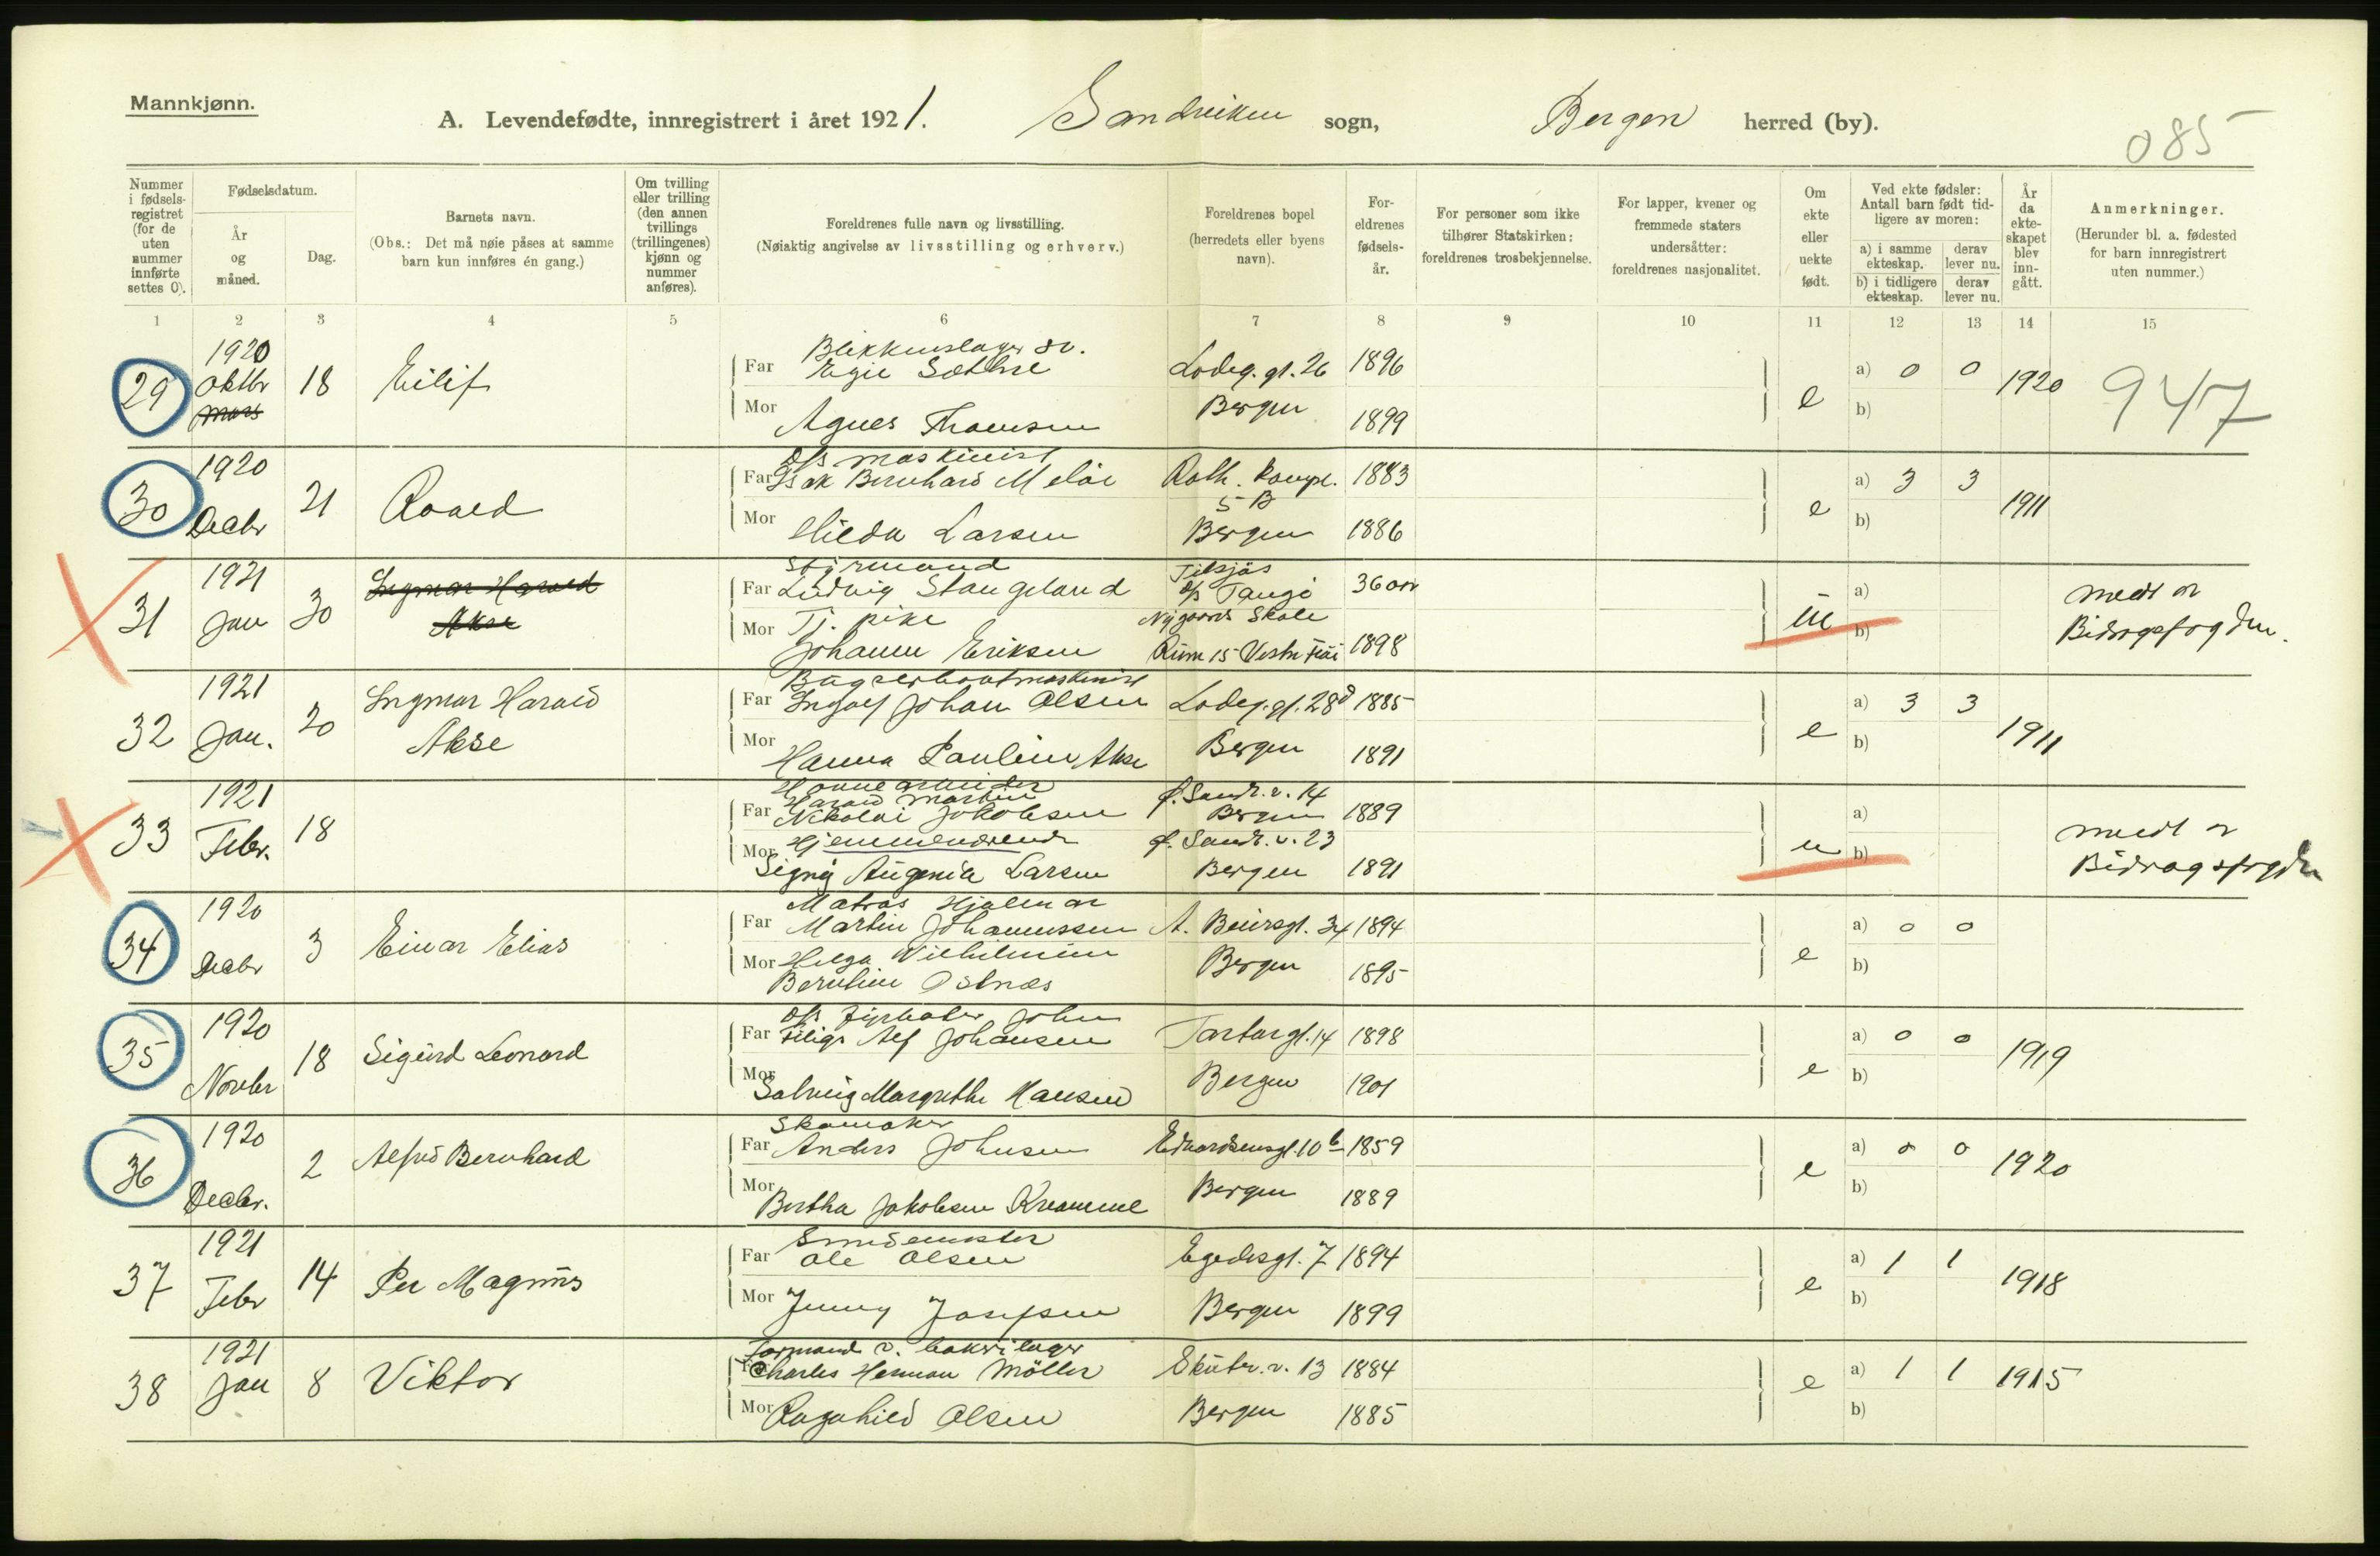 Mannkjønn.
A. Levendefødte, innregistrert i året 1921. Sandviken sogn, Bergen herred (by).
085
Nummer i fødsels-registret (for de uten nummer innførte settes 0).
Fødselsdatum.
År og måned.
Dag.
Barnets navn.
(Obs.: Det må nøie påses at samme barn kun innføres én gang.)
Om tvilling eller trilling (den annen tvillings (trillingenes) kjønn og nummer anføres).
Foreldrenes fulle navn og livsstilling.
(Nøiaktig angivelse av livsstilling og erhverv.)
Foreldrenes bopel (herredets eller byens navn).
For-eldrenes fødsels-år.
For personer som ikke tilhører Statskirken: foreldrenes trosbekjennelse.
For lapper, kvener og fremmede staters undersåtter: foreldrenes nasjonalitet.
Om ekte eller uekte født.
Ved ekte fødsler: Antall barn født tid-ligere av moren:
a) i samme ekteskap. derav lever nu.
b) i tidligere ekteskap. derav lever nu.
År da ekte-skapet blev inn-gått.
Anmerkninger.
(Herunder bl. a. fødested for barn innregistrert uten nummer.)
1 2 3 4 5 6 7 8 9 10 11 12 13 14 15
29 1920 Oktbr Mars 18 Eilif
Blikkenslager sv.
Far Egil Sæthre Lodeg. gt. 26 1896
Mor Agnes Thomsen Bergen 1899
e a) 0 0 b) 1920 947
30 1920 Decbr 21 Roald
D/s maskinist
Far Isak Bernhard Meløe Roth. kompl. 5 B 1883
Mor Hilda Larsen Bergen 1886
e a) 3 3 b) 1911
31 1921 Jan 30 Ingmar Harald Akse
Styrmand
Far Ludvig Stangeland Tilsjøs D/s 36 år
Mor Tj. pike Nygaards Skole
Johanne Eriksen Rum 15 1898
u a) b) medt av Bidragsfogden.
32 1921 Jan. 20 Ingmar Harald Akse
Bugserbaatmaskinist
Far Ingolf Johan Olsen Lodeg. gt. 28d 1885
Mor Hanna Pauline Akse Bergen 1891
e a) 3 3 b) 1911
33 1921 Febr. 18
Havnearbeider
Far Harald Martin Nikolai Jakobsen Ø. Sandv. v. 14 Bergen 1889
Mor Hjemmeværende Ø. Sandv. v. 23
Signy Augenia Larsen Bergen 1891
u a) b) medt av Bidragsfogden
34 1920 Decbr 3 Einar Elias
Matros Hjalmar
Far Martin Johannessen A. Beiersgt. 34 1894
Mor Helga Vilhelmine Bergen 1895
Berntine Østnæs
e a) 0 0 b)
35 1920 Novbr 18 Sigurd Leonard
D/s fyrbøter John
Far Filip Alf Johansen Tartargt. 14 1898
Mor Solveig Margrethe Hansen Bergen 1901
e a) 0 0 b) 1919
36 1920 Decbr. 2 Alfred Bernhard
Skomaker
Far Anders Johnsen Edvardsensgt. 10 b 1859
Mor Bertha Jakobsen Kvamme Bergen 1889
e a) 0 0 b) 1920
37 1921 Febr 14 Per Magnus
Smedemester
Far Ole Olsen Egedesgt. 7 1894
Mor Jenny Josefsen Bergen 1899
e a) 1 1 b) 1918
38 1921 Jan 8 Viktor
Formand v. bakerilager
Far Charles Herman Möller Skutev. v. 13 1884
Mor Ragnhild Olsen Bergen 1885
e a) 1 1 b) 1915